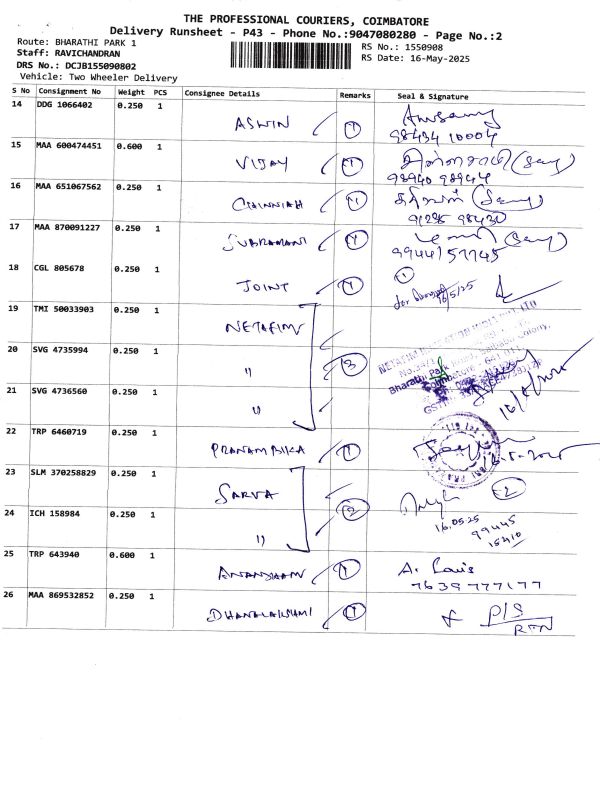 THE PROFESSIONAL COURIERS, COIMBATORE
Delivery Runsheet - P43 - Phone No.:9047080280 - Page No.:2
Route: BHARATHI PARK 1
RS No.: 1550908
Staff: RAVICHANDRAN
RS Date: 16-May-2025
DRS No.: DCJB155090802
Vehicle: Two Wheeler Delivery
S No Consignment No Weight PCS Consignee Details Remarks Seal & Signature
14 DDG 1066402 0.250 1 ASWIN 1
98434 10004
15 MAA 600474451 0.600 1 VIJAY 1
98940 98944
16 MAA 651067562 0.250 1 CHINNIAH 1
98430
17 MAA 870091227 0.250 1 SUBRAMANI 1
99441 57745
18 CGL 805678 0.250 1 JOINT 1
16/5/25
19 TMI 50033903 0.250 1 NETAFIM
20 SVG 4735994 0.250 1 " 3
Bharathi Park
21 SVG 4736560 0.250 1 "
22 TRP 6460719 0.250 1 PRANAMBIKA 1
23 SLM 370258829 0.250 1 SARVA 2
2
24 ICH 158984 0.250 1 "
16.05.25
99445
15410
25 TRP 643940 0.600 1 1
A. Louis
7639777177
26 MAA 869532852 0.250 1 DHANALAKSHMI 1
P/S